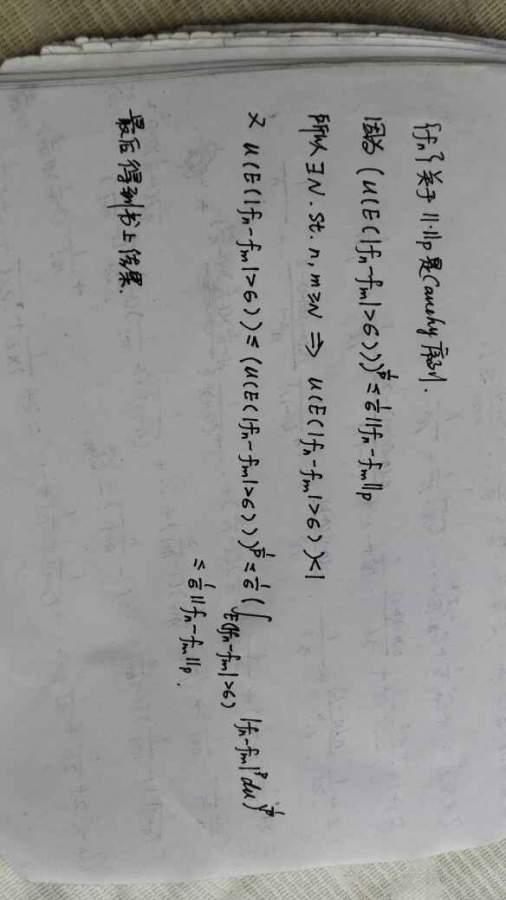 {fn}关于||·||p是Cauchy序列.
因为 (u(E(|fn-fm|>6)))^1/p ≤ 1/6 ||fn-fm||p
所以 ∃N. st. n,m≥N ⇒ u(E(|fn-fm|>6))<1
又 u(E(|fn-fm|>6)) ≤ (u(E(|fn-fm|>6)))^1/p ≤ 1/6 (∫E(|fn-fm|>6) |fn-fm|^p du)^1/p
≤ 1/6 ||fn-fm||p.
最后得到书上结果.